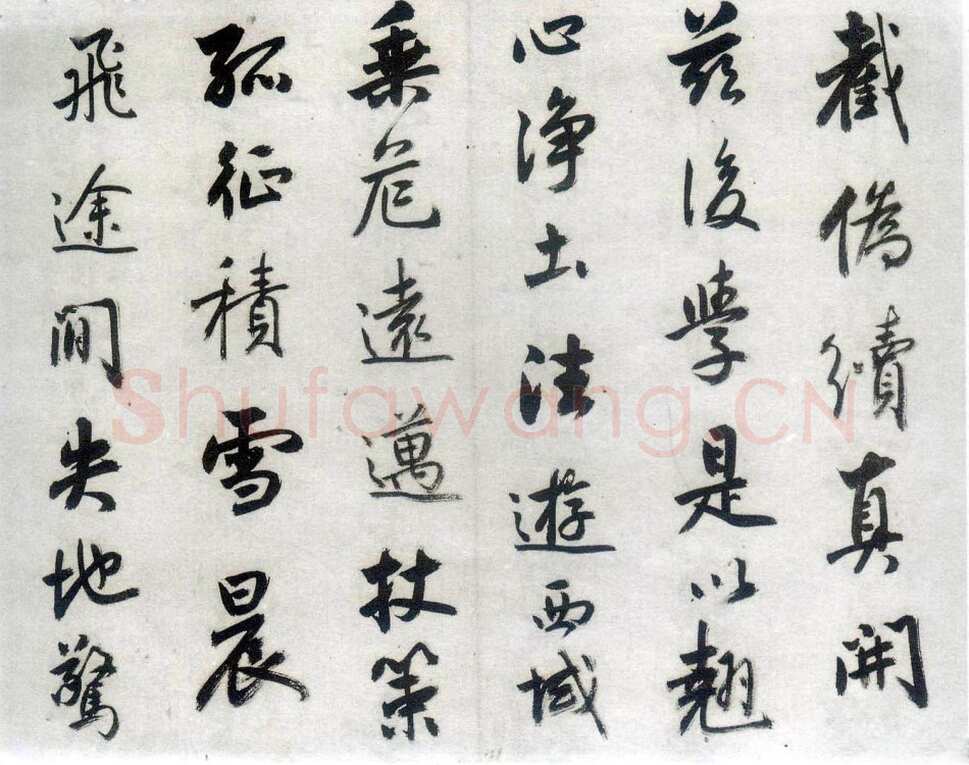 截偽續真開
茲後學是以翹
心淨土法遊西域
乘危遠邁杖策
孤征積雪晨
飛途間失地驚
Shufawang.CN